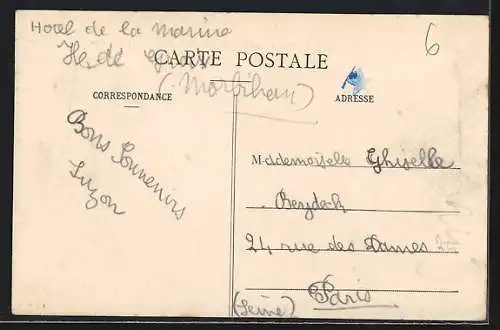 Hotel de la Marine
Ile de Groix
6
CARTE POSTALE
(Morbihan)
CORRESPONDANCE
ADRESSE
Bons Souvenirs
Suzon
Mademoiselle Ghiselle
24 rue des Dames
Paris
(Seine)